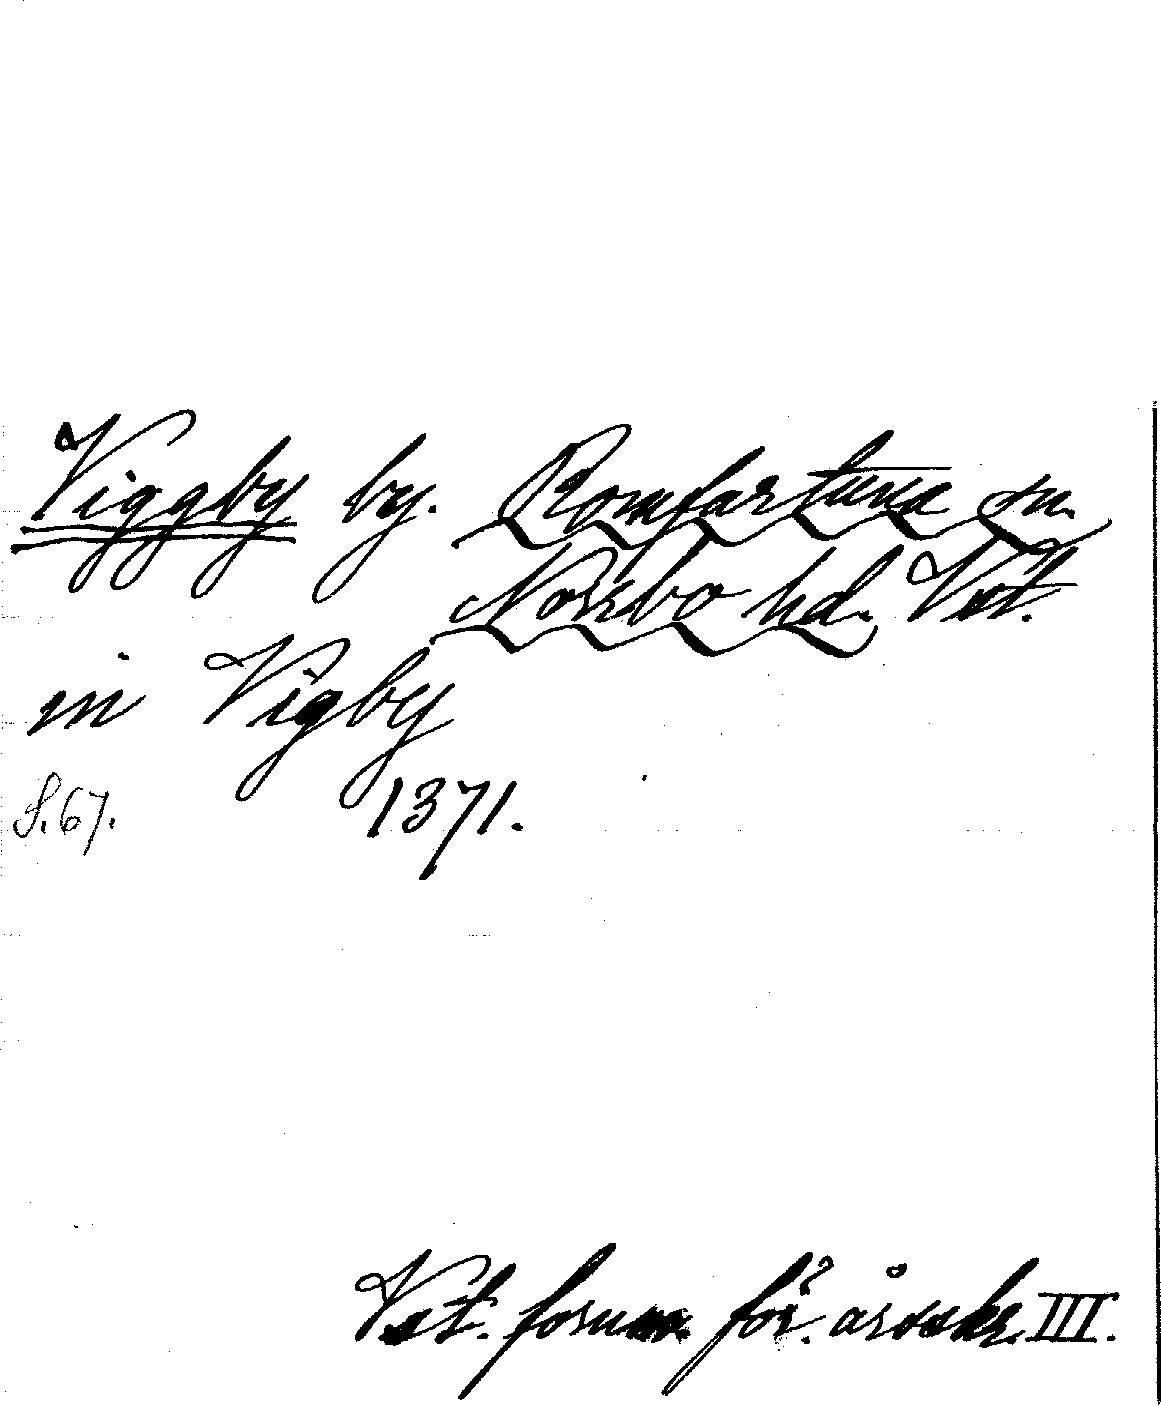 Viggby by. Romfartuna sn.
Norrbo hd. Vstl.
in Vigby
S. 67. 1371.
Vstl. fornm. för. årsskr. III.